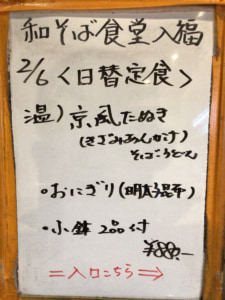 和そば食堂入福
2/6〈日替定食〉
温)京風たぬき
(きざみあんかけ)
そばorうどん
・おにぎり(明太昆布)
・小鉢2品付
¥880.-
=入口こちら⇒